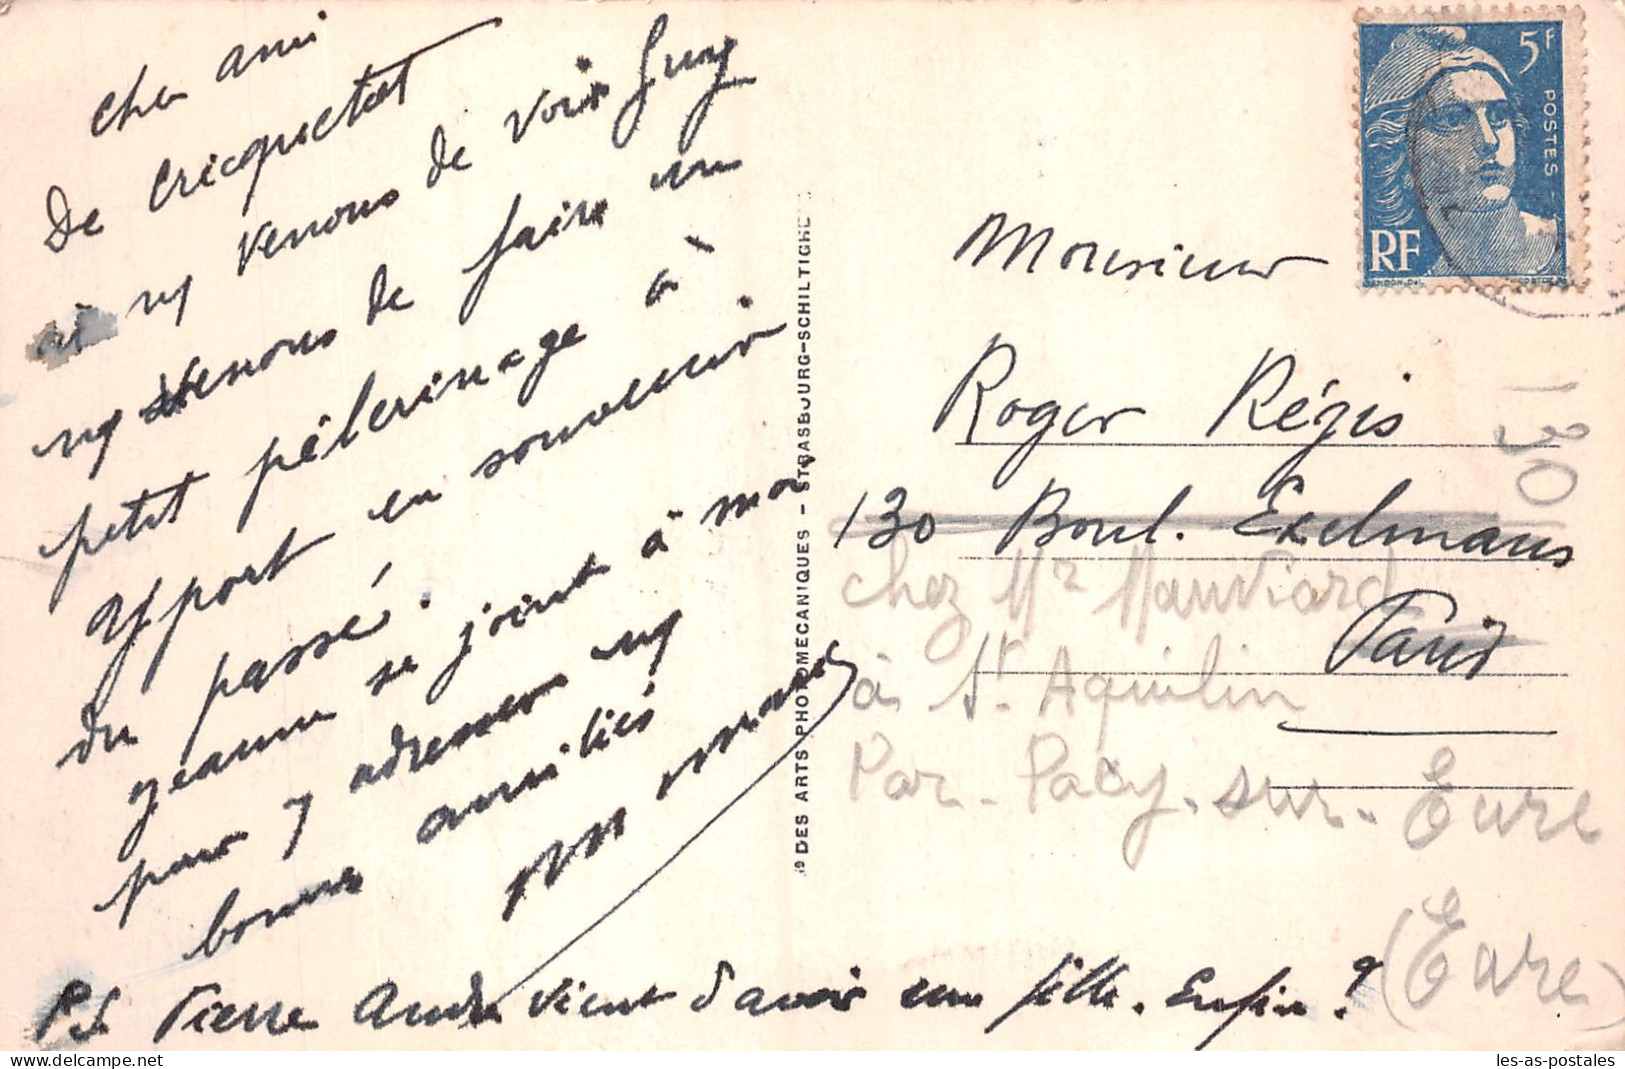 Cher ami
De Cricquetot
où ns venons de voir Guy
ns venons de faire un
petit pèlerinage à
apport en souvenir
du passé.
Jeanne se joint à moi
pour y adresser ns
bonnes amitiés
PS Pierre André vient d'avoir une fille. Enfin ?
DES ARTS PHOTOMÉCANIQUES - STRASBOURG-SCHILTIGHE
5F
POSTES
RF
Monsieur
Roger Régis
130 Boul. Exelmans
Paris
130
chez Mr Mauviard
à St Aquilin
Par - Pacy - sur - Eure
(Eure)
les-as-postales